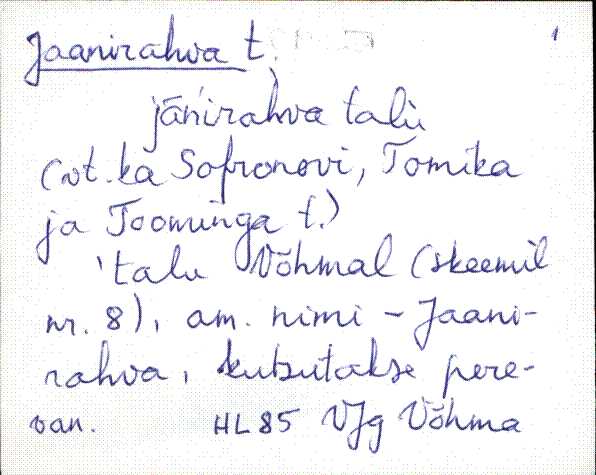 Jaanirahva t. 1
jān'iràhva talu
(vt. ka Sofronovi, Tomika
ja Toominga t.)
'talu Võhmal (skeemil
nr. 8), am. nimi – Jaani-
rahva, kutsutakse pere-
van. HL 85 VJg Võhma